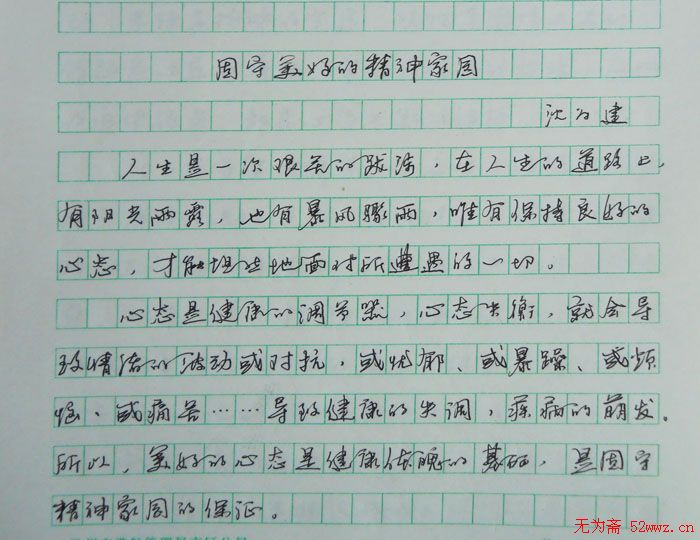 固守美好的精神家园
沈为建
人生是一次艰苦的跋涉，在人生的道路上，
有阳光雨露，也有暴风骤雨，唯有保持良好的
心态，才能坦然地面对所遭遇的一切。
心态是健康的调节器，心态失衡，就会导
致情绪的波动或对抗，或忧郁、或暴躁、或烦
恼、或痛苦……导致健康的失调，疾病的萌发。
所以，美好的心态是健康体魄的基础，是固守
精神家园的保证。
无为斋 52wwz.cn